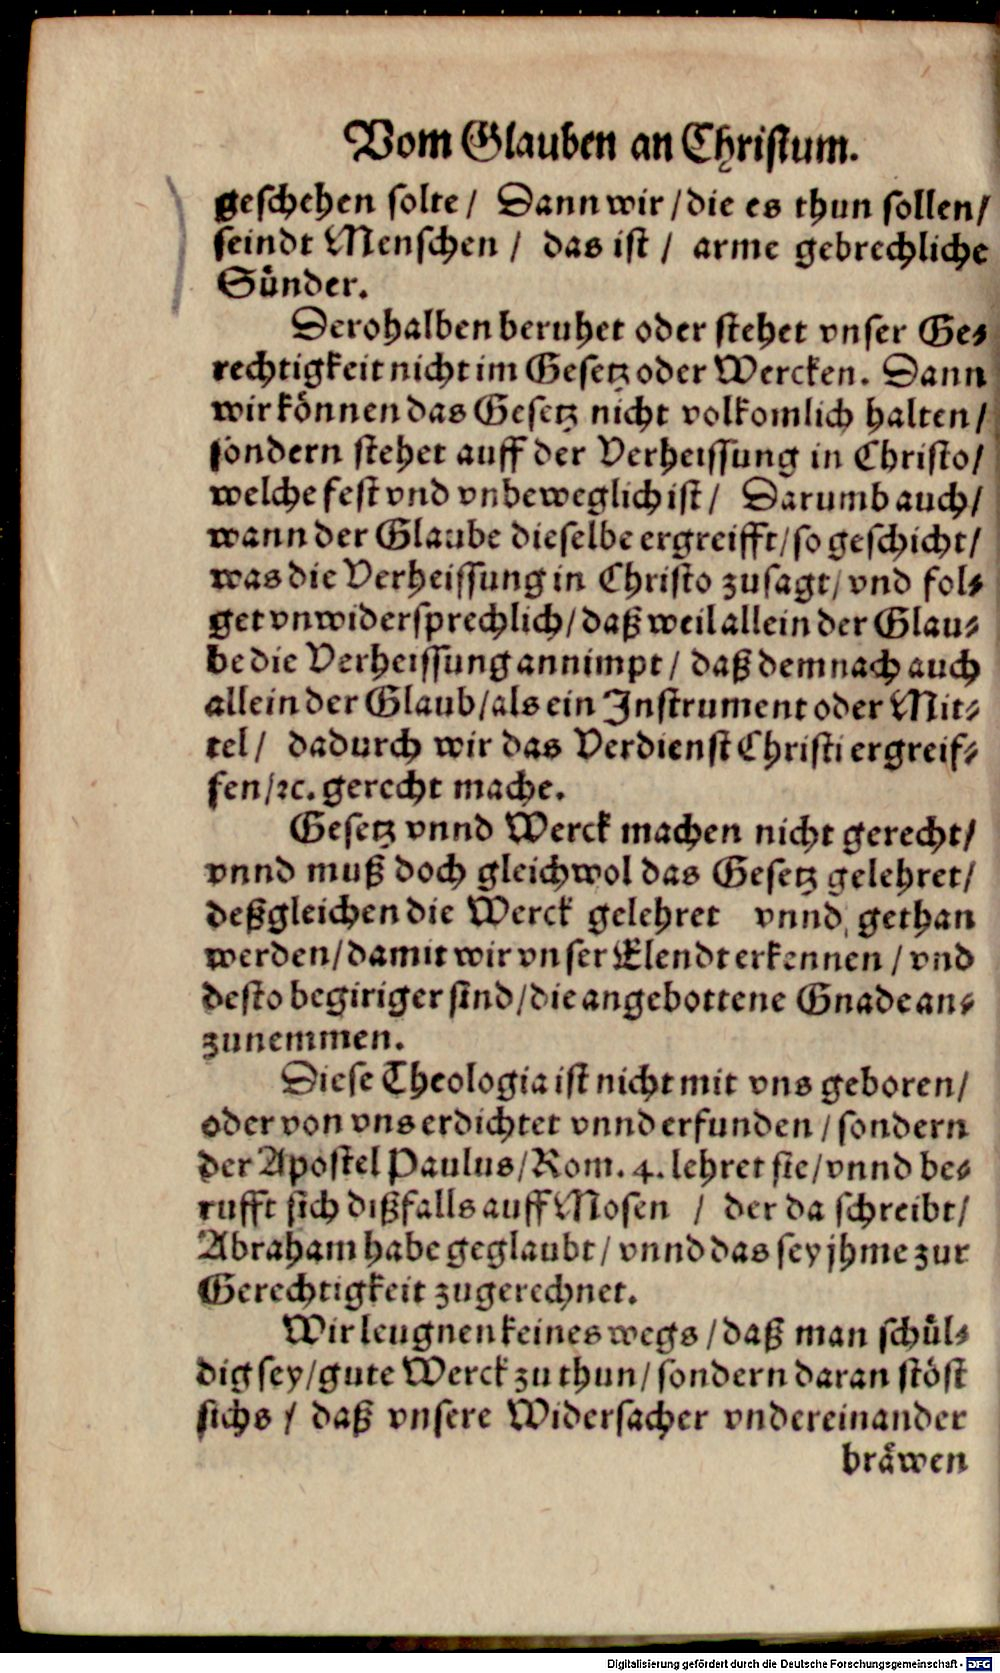 Vom Glauben an Christum.
geschehen solte / Dann wir / die es thun sollen /
seindt Menschen / das ist / arme gebrechliche
Sünder.
Derohalben beruhet oder stehet vnser Ge-
rechtigkeit nicht im Gesetz oder Wercken. Dann
wir können das Gesetz nicht volkomlich halten /
sondern stehet auff der Verheissung in Christo /
welche fest vnd vnbeweglich ist / Darumb auch /
wann der Glaube dieselbe ergreifft / so geschicht /
was die Verheissung in Christo zusagt / vnd fol-
get vnwidersprechlich / daß weil allein der Glau-
be die Verheissung annimpt / daß demnach auch
allein der Glaub / als ein Instrument oder Mit-
tel / dadurch wir das Verdienst Christi ergreif-
fen / ꝛc. gerecht mache.
Gesetz vnnd Werck machen nicht gerecht /
vnnd muß doch gleichwol das Gesetz gelehret /
deßgleichen die Werck gelehret vnnd gethan
werden / damit wir vnser Elendt erkennen / vnd
desto begiriger sind / die angebottene Gnade an-
zunemmen.
Diese Theologia ist nicht mit vns geboren /
oder von vns erdichtet vnnd erfunden / sondern
der Apostel Paulus / Rom. 4. lehret sie / vnnd be-
rufft sich dißfalls auff Mosen / der da schreibt /
Abraham habe geglaubt / vnnd das sey jhme zur
Gerechtigkeit zugerechnet.
Wir leugnen keines wegs / daß man schül-
dig sey / gute Werck zu thun / sondern daran stöst
sichs / daß vnsere Widersacher vndereinander
bräwen
Digitalisierung gefördert durch die Deutsche Forschungsgemeinschaft - DFG